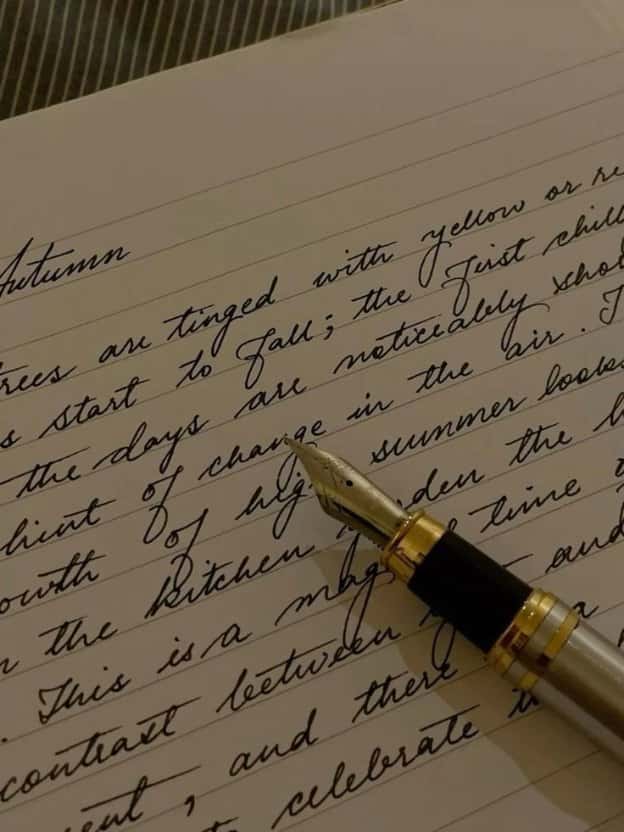 Autumn
trees are tinged with yellow or
start to fall; the first chill
the days are noticeably
hint of change in the air.
of high summer looks
the kitchen the
This is a time
contrast between and
, and there a
celebrate